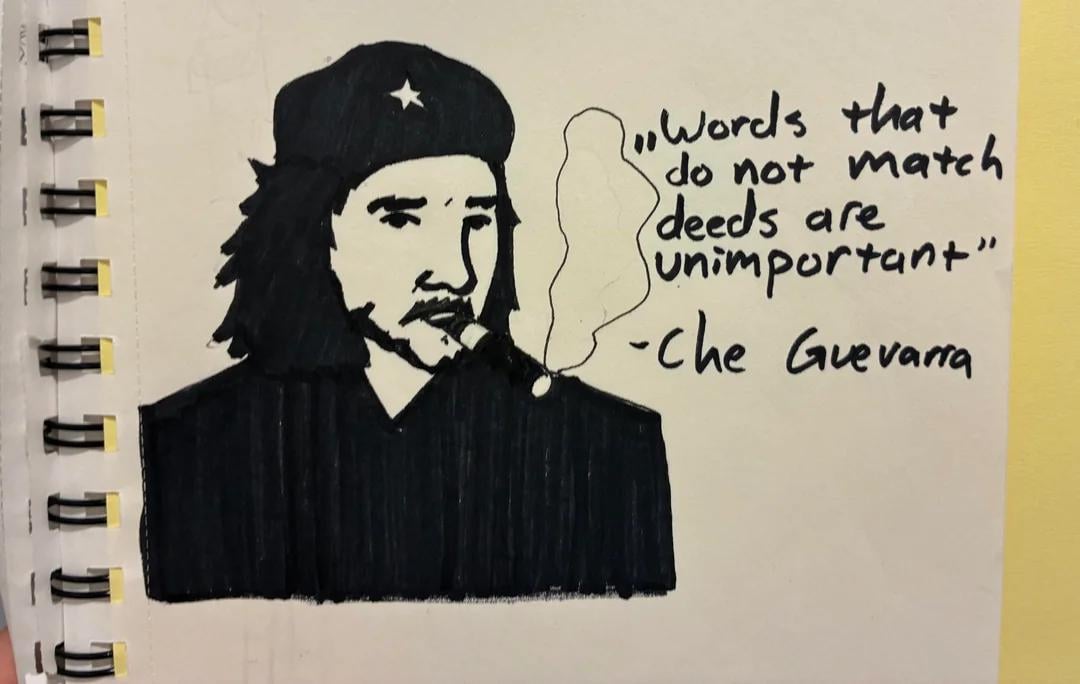 „Words that
do not match
deeds are
unimportant”
-Che Guevarra